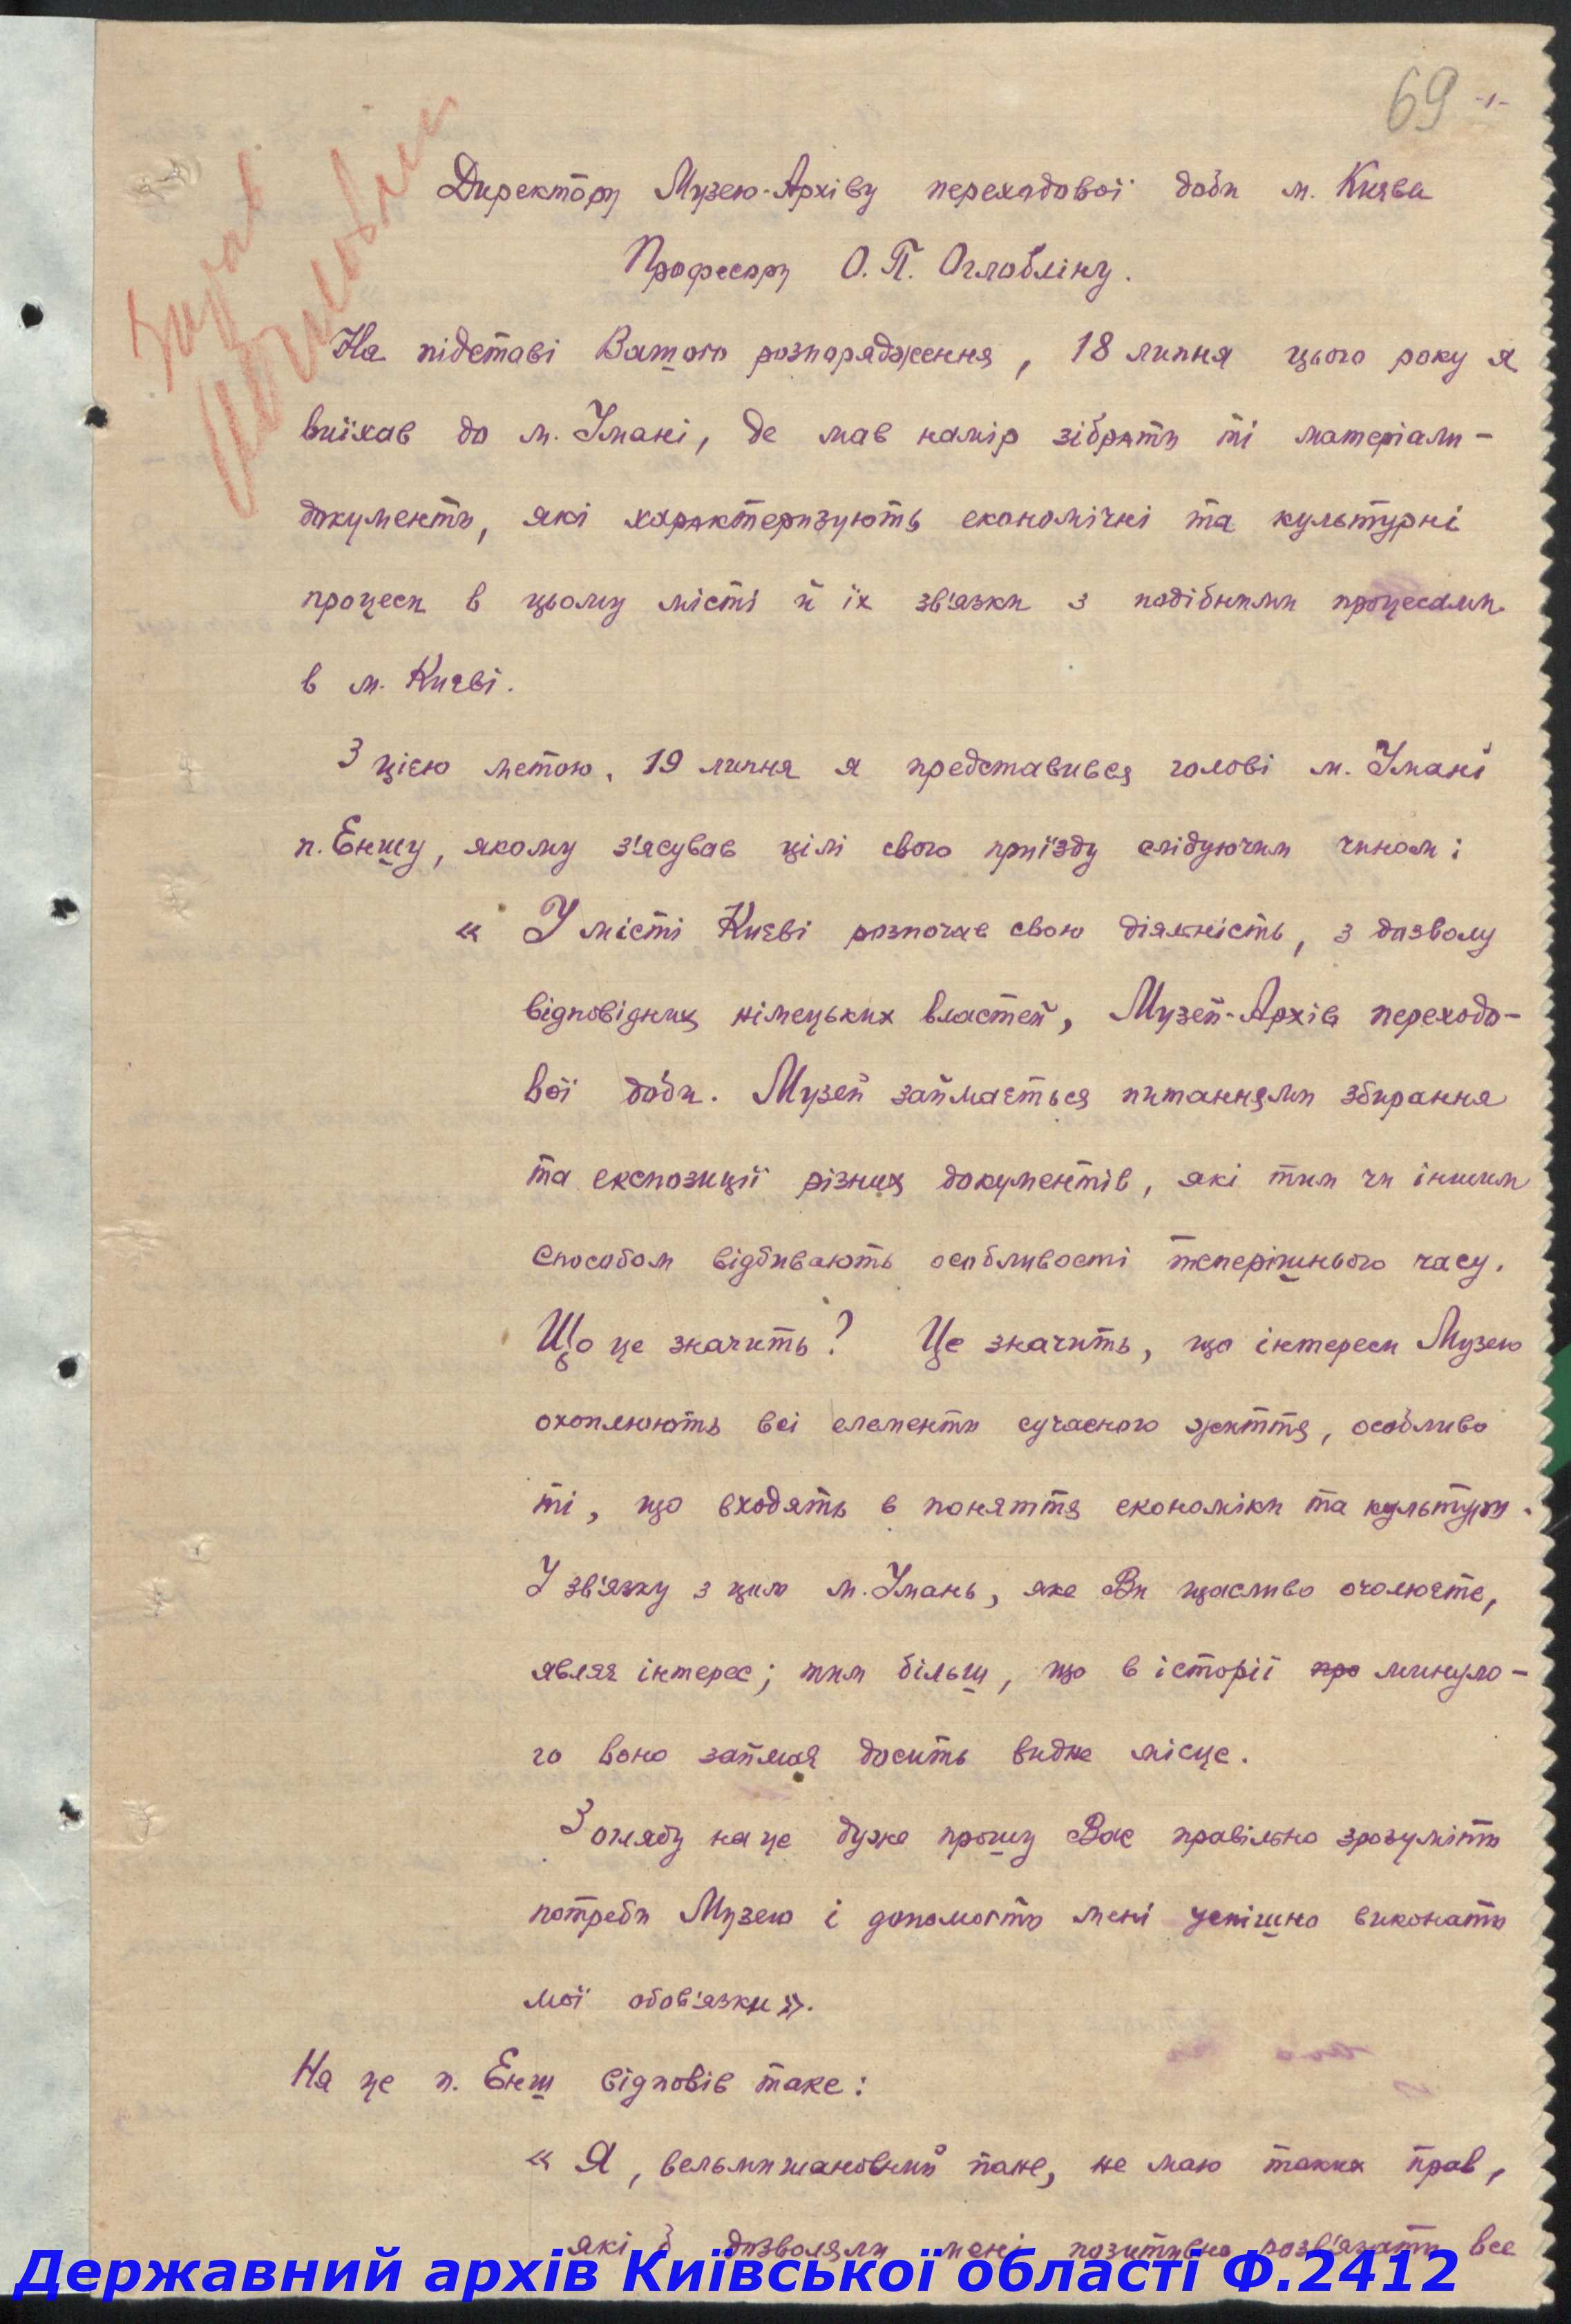 69 -1-
Директору Музею-Архіву переходової доби м. Києва
Професору О. П. Оглобліну.
На підставі Вашого розпорядження, 18 липня цього року я
виїхав до м. Умані, де мав намір зібрати ті матеріали-
документи, які характеризують економічні та культурні
процеси в цьому місті й їх зв'язки з подібними процесами
в м. Києві.
З цією метою, 19 липня я представився голові м. Умані
п. Еншу, якому з'ясував цілі свого приїзду слідуючим чином:
« У місті Києві розпочав свою діяльність, з дозволу
відповідних німецьких властей, Музей-Архів переходо-
вої доби. Музей займається питаннями збирання
та експозиції різних документів, які тим чи іншим
способом відбивають особливості теперішнього часу.
Що це значить? Це значить, що інтереси Музею
охоплюють всі елементи сучасного життя, особливо
ті, що входять в поняття економіки та культури.
У зв'язку з цим м. Умань, яке Ви щасливо очолюєте,
являє інтерес; тим більш, що в історії про минуло-
го воно займає досить видне місце.
З огляду на це дуже прошу Вас правільно зрозуміти
потреби Музею і допомогти мені успішно виконати
мої обов'язки».
На це п. Енш відповів таке:
« Я, вельмишановний пане, не маю таких прав,
які б дозволяли мені позитивно розв'язати все
Державний архів Київської області Ф.2412